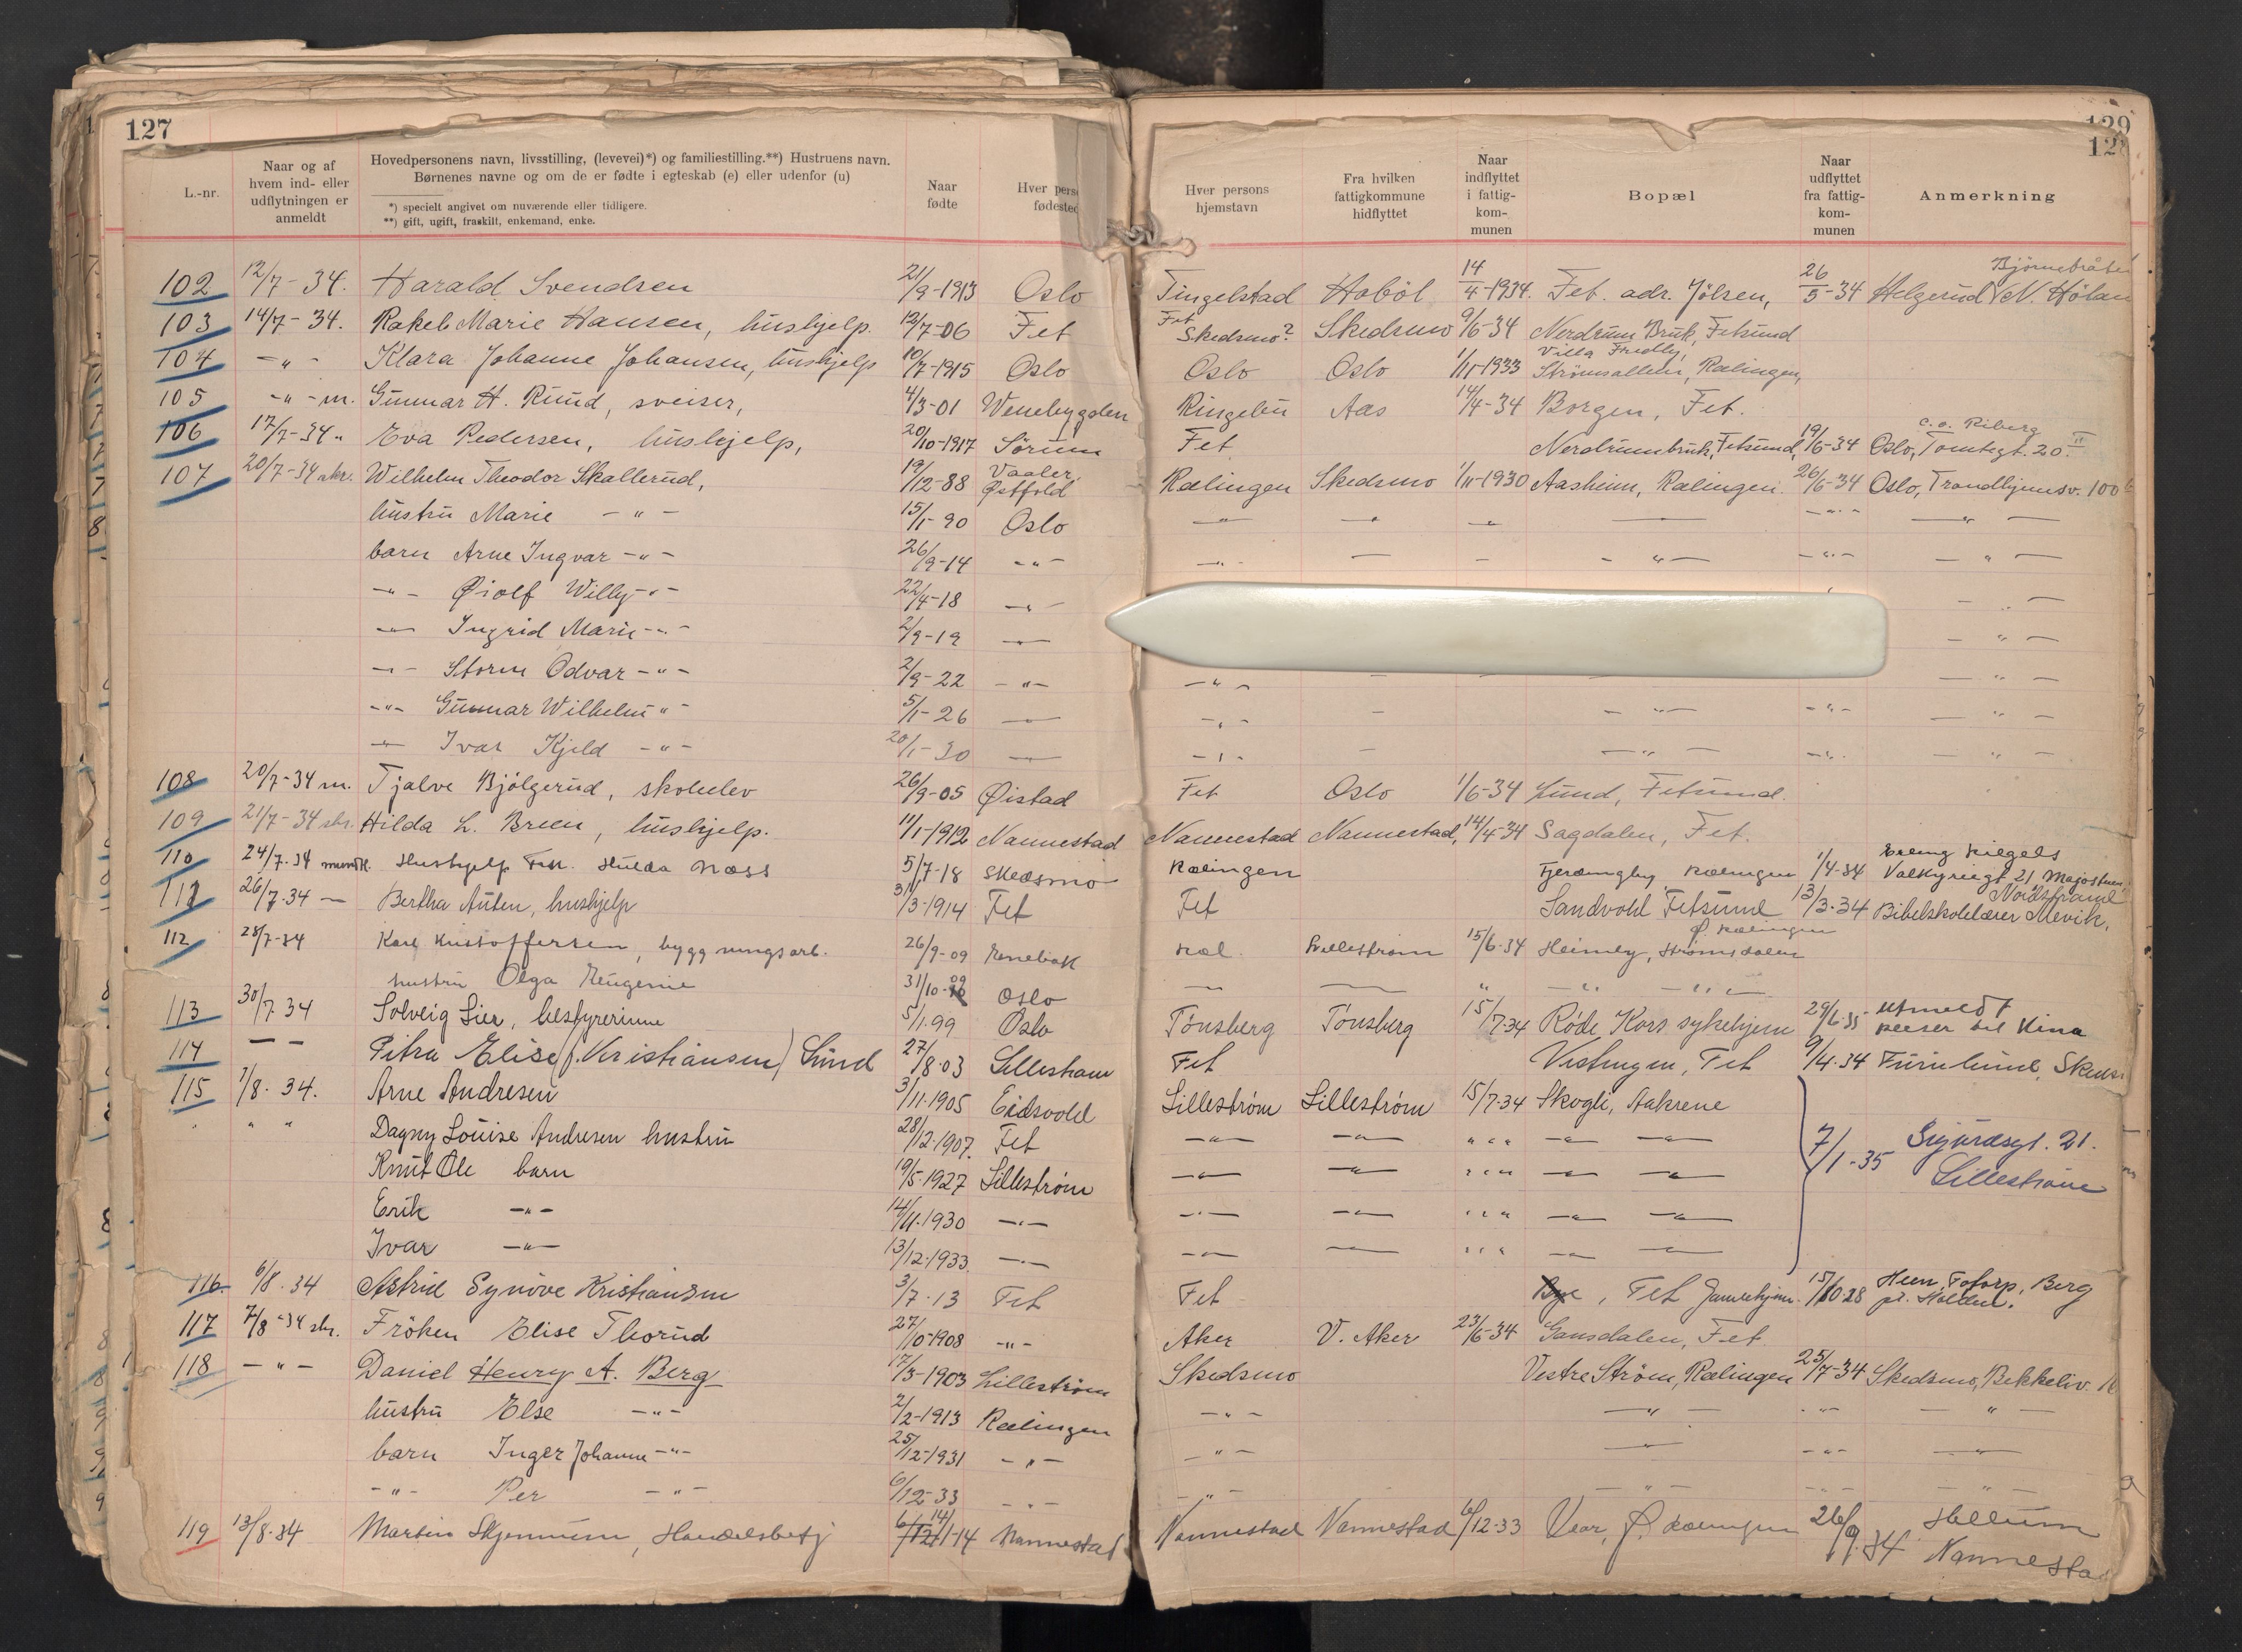 127
129
128
L.-nr.
Naar og af hvem ind- eller udflytningen er anmeldt
Hovedpersonens navn, livsstilling, (levevei)*) og familiestilling.**) Hustruens navn.
Børnenes navne og om de er fødte i egteskab (e) eller udenfor (u)
*) specielt angivet om nuværende eller tidligere.
**) gift, ugift, fraskilt, enkemand, enke.
Naar fødte
Hver perso fødested
Hver persons hjemstavn
Fra hvilken fattigkommune hidflyttet
Naar indflyttet i fattig-kom-munen
Bopæl
Naar udflyttet fra fattig-kom-munen
Anmerkning
102 12/7-34. Harald Svendsen 21/9-1913 Oslo Tingelstad Hobøl 14/4-1934. Fet. adr. Jölsen, 26/5-34 Helgerud N. Hölan
103 14/7-34. Rakel Marie Hansen, hushjelp. 12/7-06 Fet Fet Skedsmo? Skedsmo 9/6-34 Nerdrum Bruk, Fetsund
104 -"- Klara Johanne Johansen, hushjelp 10/7-1915 Oslo Oslo Oslo 1/11-1933 Villa Fredly, Strømsallen, Rælingen,
105 -"- m. Gunnar H. Ruud, sveiser, 4/3-01 Venebygden Ringebu Aas 14/4-34 Borgen, Fet.
106 17/7-34 Eva Pedersen, hushjelp, 20/10-1917 Sörum Fet Nerdrumbruk, Fetsund, 19/6-34 Oslo, Tomtegt. 20 II c.o. Riberg
107 20/7-34 skr. Wilhelm Theodor Skallerud, 19/12-88 Vaaler, Østfold Rælingen Skedsmo 1/11-1930 Aasheim, Rælingen. 26/6-34 Oslo, Trondhjemsv. 100
hustru Marie -"- 15/1-90 Oslo
barn Arne Ingvar -"- 26/9-14 -"-
-"- Øiolf Willy -"- 22/4-18 -"-
-"- Ingrid Marie -"- 2/9-19 -"-
-"- Storm Odvar -"- 2/9-22 -"-
-"- Gunnar Wilhelm -"- 5/1-26 -"-
-"- Ivar Kjeld -"- 20/1-30 -"-
108 20/7-34 m. Tjalve Bjölgerud, skoleelev 26/9-05 Øistad Fet Oslo 1/6-34 Lund, Fetsund.
109 21/7-34 skr. Hilda L. Breen, hushjelp. 11/1-1912 Nannestad Nannestad Nannestad, 14/4-34 Sagdalen, Fet.
110 24/7-34 mundtl. Hushjelp Frk. Hulda Næss 5/7-18 Skedsmo Rælingen Rælingen 1/4-34 Erling Kilgels Valkyriegt 21 Majostuen
111 26/7-34 - Bertha Auten, hushjelp 31/3-1914 Fet Fet Sandvold Fetsund 13/3-34 Bibelskolelærer Mevik, Nordstrand
112 28/7-34 Karl Kristoffersen, bygningsarb. 26/9-09 Enebak Ræl. Lillestrøm 15/6-34 Heimly, Strømsdalen Ø. Rælingen
hustru Olga Eugenie 31/10-09 Oslo
113 30/7 34 Solveig Lier, bestyrerinne 5/1.99 Oslo Tønsberg Tønsberg 15/7-34 Røde Kors sykehjem 29/6-35 Utmeldt reiser til Kina
114 - - Petra Elise (f. Kristiansen) Lund 27/8-03 Lillestrøm Fet Vestengen, Fet 9/4-34 Furulund, Skeds
115 1/8. 34. Arne Andresen 3/11.1905 Eidsvold Lillestrøm Lillestrøm 15/7-34 Skogli, Aakrene 7/1-35 Sigurdsgt. 21. Lillestrøm
" " Dagny Louise Andresen hustru 28/12-1907. Fet
Knut Ole barn 19/5-1927 Lillestrøm
Erik -"- 14/11.1930 -"-
Ivar -"- 13/12.1933 -"-
116. 6/8. 34 Astrid Synöve Kristiansen 3/7-13 Fet Fet Bye, Fet 15/10 28 Berg pr. Halden.
117 7/8-34 skr. Fröken Elise Thorud 27/10-1908 -"- Aker V. Aker 23/6-34 Gansdalen, Fet.
118 -"- Daniel Henry A. Berg 17/3-1903 Lillestrøm Skedsmo Vestre Strøm, Rælingen 25/7-34 Skedsmo, Bekkeliv.
hustru Else -"- 2/2-1913 Rælingen
barn Inger Johanne -"- 25/12-1931 -"-
-"- Per -"- 6/12-33 -"-
119 13/8-34 Martin Skjennum, Handelsbetj 14/1-14 Nannestad Nannestad Nannestad 6/12-33 Ø. Rælingen 26/9.34 Hellum Nannestad